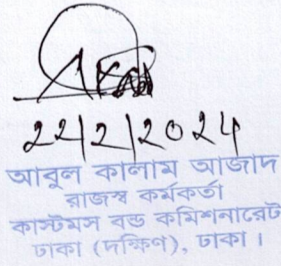 ২২/২/২০২৫
আবুল কালাম আজাদ
রাজস্ব কর্মকর্তা
কাস্টমস বন্ড কমিশনারেট
ঢাকা (দক্ষিণ), ঢাকা।